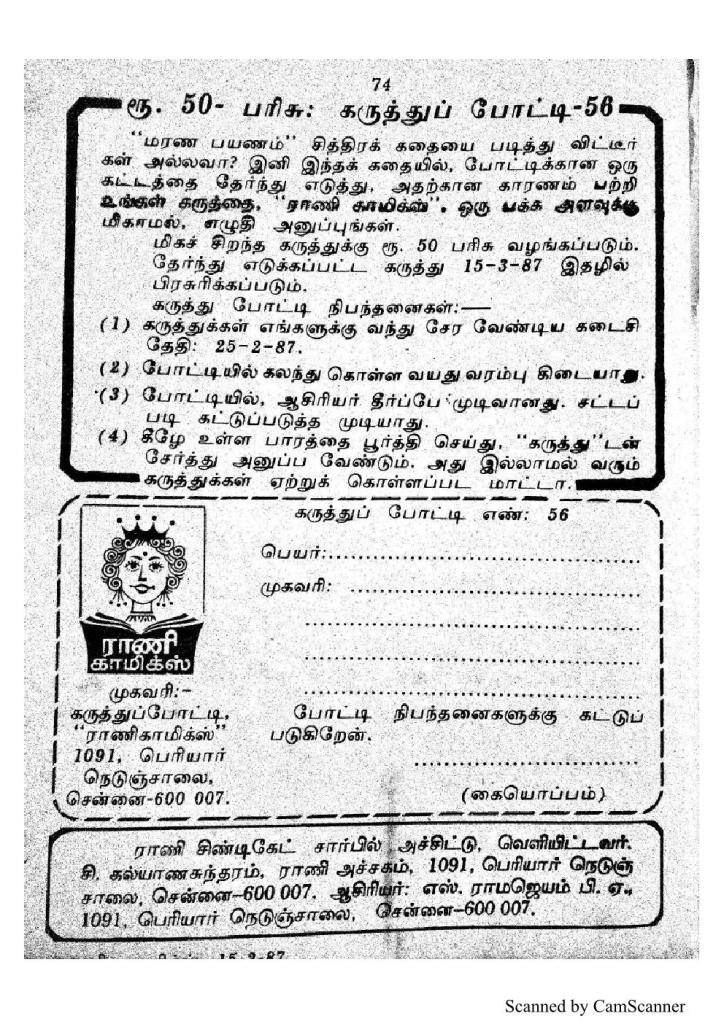 74
ரூ. 50- பரிசு: கருத்துப் போட்டி-56
"மரண பயணம்" சித்திரக் கதையை படித்து விட்டீர்
கள் அல்லவா? இனி இந்தக் கதையில், போட்டிக்கான ஒரு
கட்டத்தை தேர்ந்து எடுத்து, அதற்கான காரணம் பற்றி
உங்கள் கருத்தை, "ராணி காமிக்ஸ்", ஒரு பக்க அளவுக்கு
மிகாமல், எழுதி அனுப்புங்கள்.
மிகச் சிறந்த கருத்துக்கு ரூ. 50 பரிசு வழங்கப்படும்.
தேர்ந்து எடுக்கப்பட்ட கருத்து 15-3-87 இதழில்
பிரசுரிக்கப்படும்.
கருத்து போட்டி நிபந்தனைகள்:—
(1) கருத்துக்கள் எங்களுக்கு வந்து சேர வேண்டிய கடைசி
தேதி: 25-2-87.
(2) போட்டியில் கலந்து கொள்ள வயது வரம்பு கிடையாது.
(3) போட்டியில், ஆசிரியர் தீர்ப்பே முடிவானது. சட்டப்
படி கட்டுப்படுத்த முடியாது.
(4) கீழே உள்ள பாரத்தை பூர்த்தி செய்து, "கருத்து"டன்
சேர்த்து அனுப்ப வேண்டும். அது இல்லாமல் வரும்
கருத்துக்கள் ஏற்றுக் கொள்ளப்பட மாட்டா.
கருத்துப் போட்டி எண்: 56
பெயர்:........................................
முகவரி: ........................................
........................................
........................................
........................................
ராணி
காமிக்ஸ்
முகவரி:-
கருத்துப்போட்டி,
"ராணிகாமிக்ஸ்"
1091, பெரியார்
நெடுஞ்சாலை,
சென்னை-600 007.
போட்டி நிபந்தனைகளுக்கு கட்டுப்
படுகிறேன்.
........................................
(கையொப்பம்)
ராணி சிண்டிகேட் சார்பில் அச்சிட்டு, வெளியிட்டவர்.
சி. கல்யாணசுந்தரம், ராணி அச்சகம், 1091, பெரியார் நெடுஞ்
சாலை, சென்னை–600 007. ஆசிரியர்: எஸ். ராமஜெயம் பி. ஏ.,
1091, பெரியார் நெடுஞ்சாலை, சென்னை–600 007.
15-2-87
Scanned by CamScanner